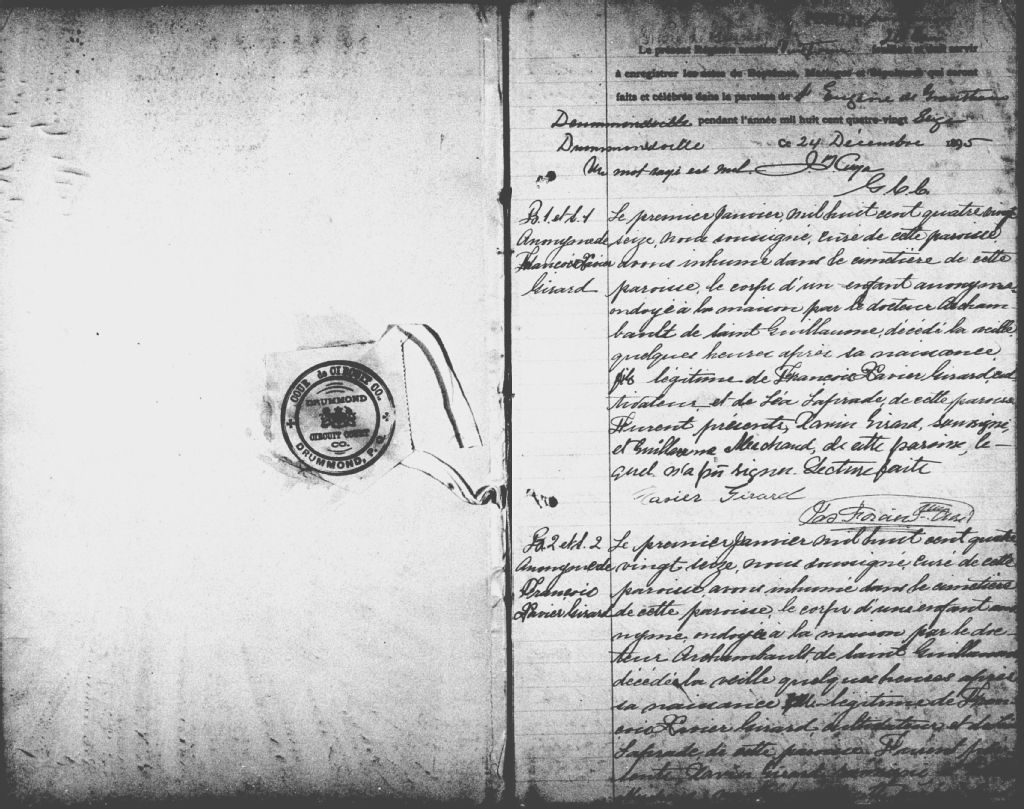 COUR de CIRCUIT CO.
DRUMMOND
CIRCUIT COURT
CO.
DRUMMOND, P. Q.
Le présent Registre
à enregistrer les actes de Baptêmes, Mariages et Sépultures qui seront
faits et célébrés dans la paroisse de St Eugène de Grantham
Drummondville pendant l'année mil huit cent quatre-vingt Seize
Drummondville Ce 24 Décembre 1895
Un mot rayé est nul.
G. C. C.
Le premier Janvier, mil huit cent quatre vingt
Anonyme de seize, nous soussigné, curé de cette paroisse
François Xavier avons inhumé dans le cimetière de cette
Girard paroisse, le corps d'un enfant anonyme,
ondoyé à la maison par le docteur Archam
bault de Saint Guillaume, décédé la veille
quelques heures après sa naissance
fils légitime de François Xavier Girard, cul
tivateur, et de Léa Laforade, de cette paroisse
Furent présents, Xavier Girard, soussigné
et Guillaume Méchaud, de cette paroisse, le-
quel n'a pû signer. Lecture faite
Xavier Girard
Ptre Curé
Le premier Janvier mil huit cent quatre
Anonyme de vingt seize, nous soussigné, curé de cette
François paroisse avons inhumé dans le cimetière
Xavier Girard de cette paroisse, le corps d'une enfant ano
nyme, ondoyée à la maison par le doc-
teur Archambault, de Saint Guillaume
décédée la veille quelques heures après
sa naissance légitime de Fran
çois Xavier Girard, cultivateur et de Léa
Laforade de cette paroisse Furent pré
sents, Xavier Girard